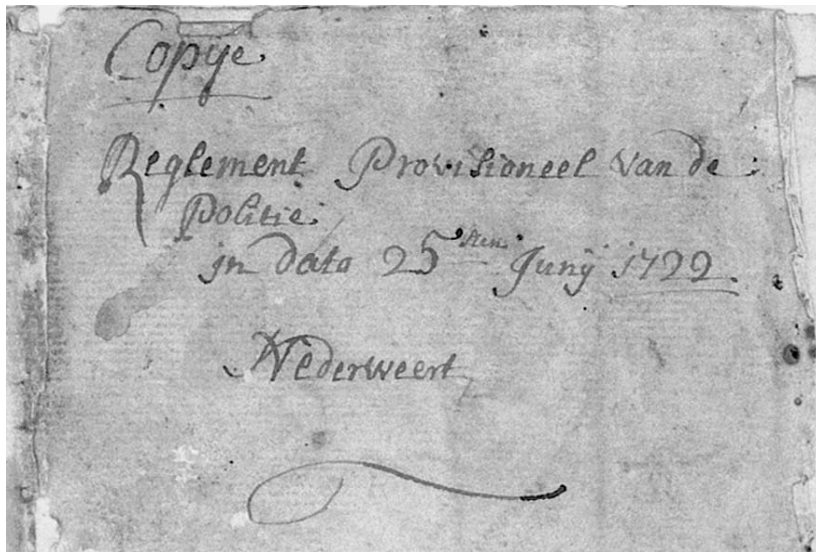 Copije
Reglement Provisioneel van de
Politie
jn dato 25sten Junij 1722
Nederweert